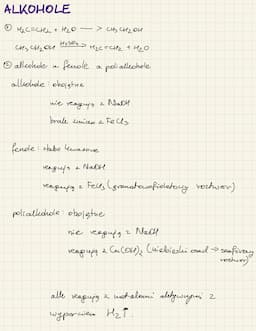 ALKOHOLE
① H₂C=CH₂ + H₂O —> CH₃CH₂OH
CH₃CH₂OH H₂SO₄> H₂C=CH₂ + H₂O
② alkohole a fenole a polialkohole
alkohole: obojętne
nie reagują z NaOH
brak zmian z FeCl₃
fenole: słabo kwasowe
reagują z NaOH
reagują z FeCl₃ (granatowofioletowy roztwór)
polialkohole: obojętne
nie reagują z NaOH
reagują z Cu(OH)₂ (niebieski osad → szafirowy
roztwór)
alk reagują z metalami aktywnymi z
wyparciem H₂↑.